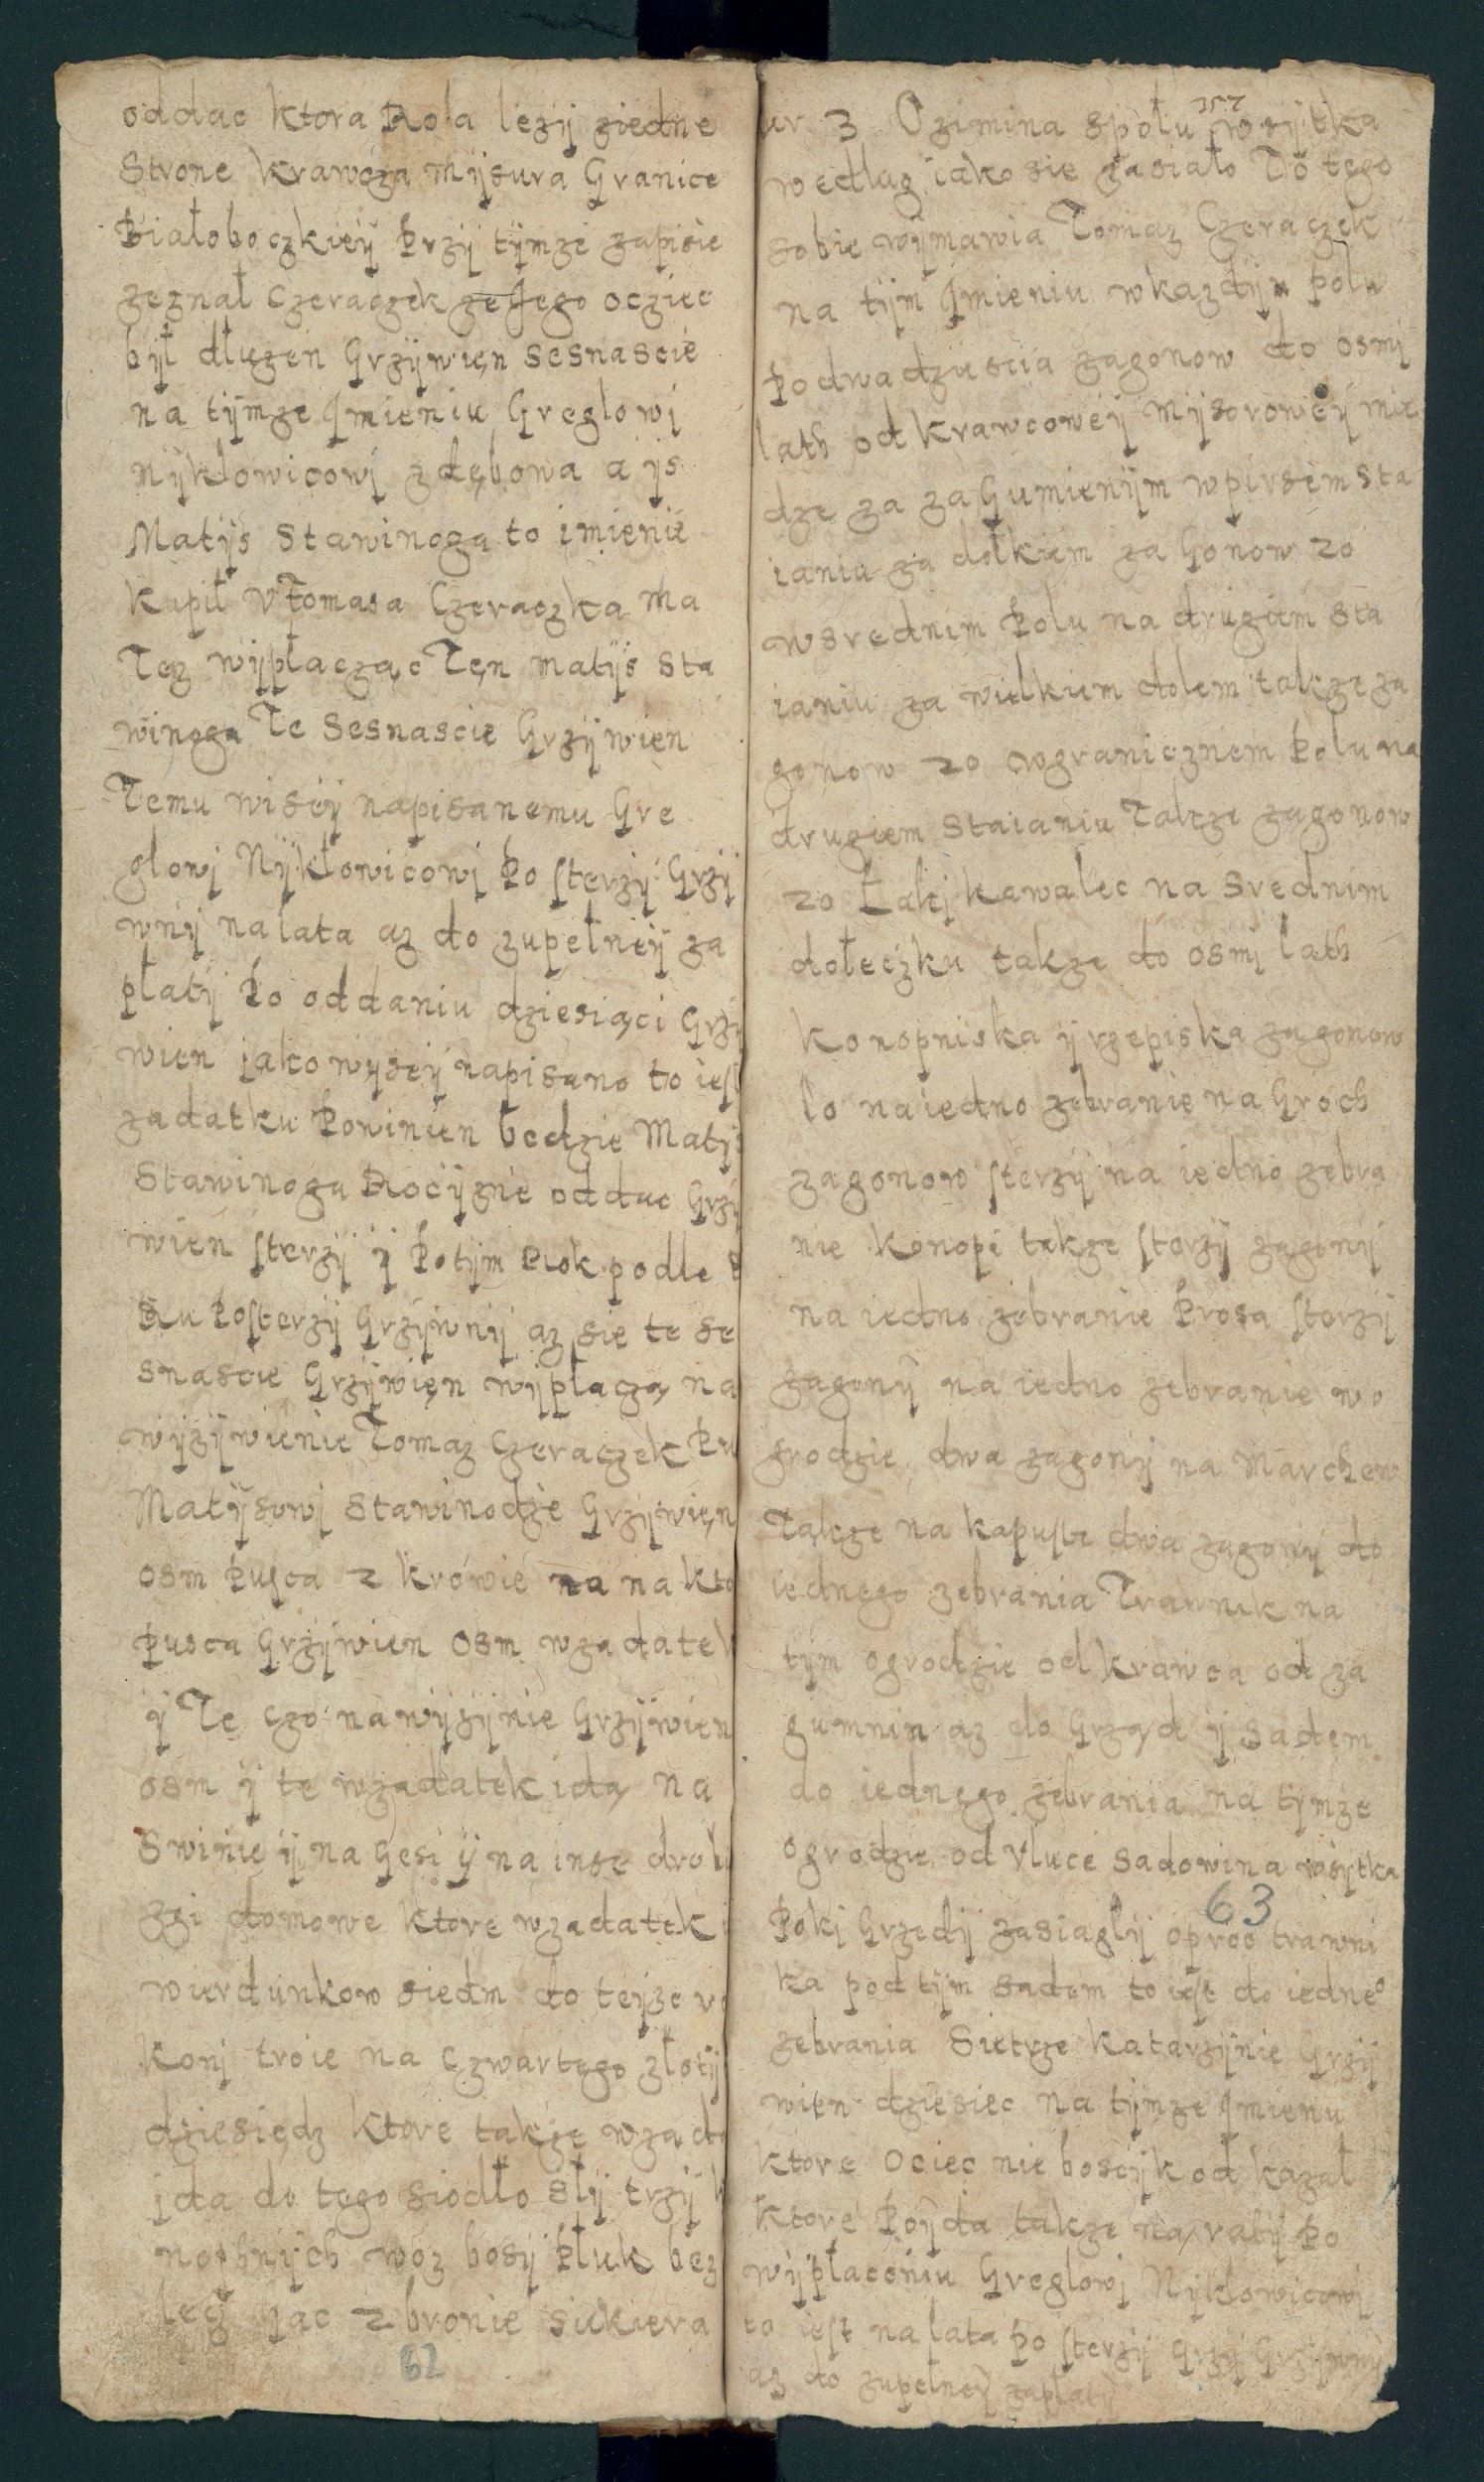 oddac ktora Rola lezÿ ziedne
Strone krawcza Mÿsura Granice
Białoboczkieÿ Przÿ tÿmze zapisie
zeznał Czeraczek ze Jego oczieć
bÿł dłuzen Grzÿwięn sesnascie
na tÿmze Jmieniu Greglowj
nÿklowicowj zdębowa a ÿs
Matÿs Stawinoga to imienie
kupił V Tomasa Czeraczka Ma
Tez wÿpłaczac Tęn matÿs Sta
winoga Te Sesnascie Grzÿwien
Temu wiseÿ napisanemu Gre
glowj Nÿklowicowj Po sterzÿ Grzÿ
wnÿ na lata az do zupełneÿ za
płatÿ Po oddaniu dziesiąci Grzÿ
wien jako wÿseÿ napisano to iest
zadatku Powinien będzie Matÿs
Stawinoga Rocÿznie oddac Grzÿ
wien sterzÿ ÿ Potÿm Rok podle R
Ku Po sterzÿ Grzÿwnÿ az się te se
snascie Grzÿwięn wÿpłaczą na
wÿzÿwienie Tomaz Czeraczek Pu
Matÿsowj Stawinodze Grzÿwięn
osm Pusca 2 krowie na na kto
pusca Grzÿwien osm wzadatek
ÿ Te czo na wÿsÿnie Grzÿwien
osm ÿ te wzadatek idą na
Swinie ÿ na Gęsi ÿ na inse drob
zgi domowe ktore wzadatek i
wierdunkow siedm do teÿze
konj troie na czwartego złotÿ
dziesiędz ktore takze wzad
jda do tego siodło slÿ trzÿ
nothnÿch woz bosÿ Płuk bez
lęg Jac 2 bronie siekiera
62
ur 3 Ozimina społu wsÿtka
według iako sie zasiało Do tego
sobie wÿmawia Tomaz Czeraczek
na tÿm Jmieniu wkazdÿm polu
Po dwadziescia zagonow do osmj
lath od krawcoweÿ Mÿsoroweÿ mie
dze za za Gumienÿm wpirsem sta
ianiu za dołkiem za Gonow 20
wsrednim Polu na drugiem sta
ianiu za wielkiem dolem takze za
gonow 20 wgranicznem Polu na
drugiem staianiu Takze zagonow
20 kawalec na srednim
dołeczku takze do osmj lath
Konopniska ÿ rzepiska zagonow
10 na iedno zebranie na Groch
zagonow sterzÿ na iedno zebra
nie konopi takze sterzÿ zagonÿ
na iedno zebranie Prosa sterzÿ
zagonÿ na iedno zebranie wo
grodzie dwa zagonÿ na Marchew
Takze na kapuste dwa zagonÿ do
iednego zebrania Trawnik na
tÿm ogrodzie od krawca od za
gumnin az do Grząd ÿ sadem
do iednego zebrania na tÿmze
ogrodzie od Vlice sadowina wsÿtka
63
Pokj Grzedÿ zasiaglÿ oprоc trawni
ka pod tÿm sadem to iest do iedneo
zebrania Sietrze katarzÿnie Grzÿ
wien dziesiec na tÿmze Jmieniu
ktore ociec nieboscÿk od kazał
ktore Poÿda takze na ratÿ Po
wÿpłaceniu Greglowj Nÿklowicowj
to iest na lata po sterzÿ Grzÿ Grzÿwnÿ
az do zupełneÿ zapłatÿ